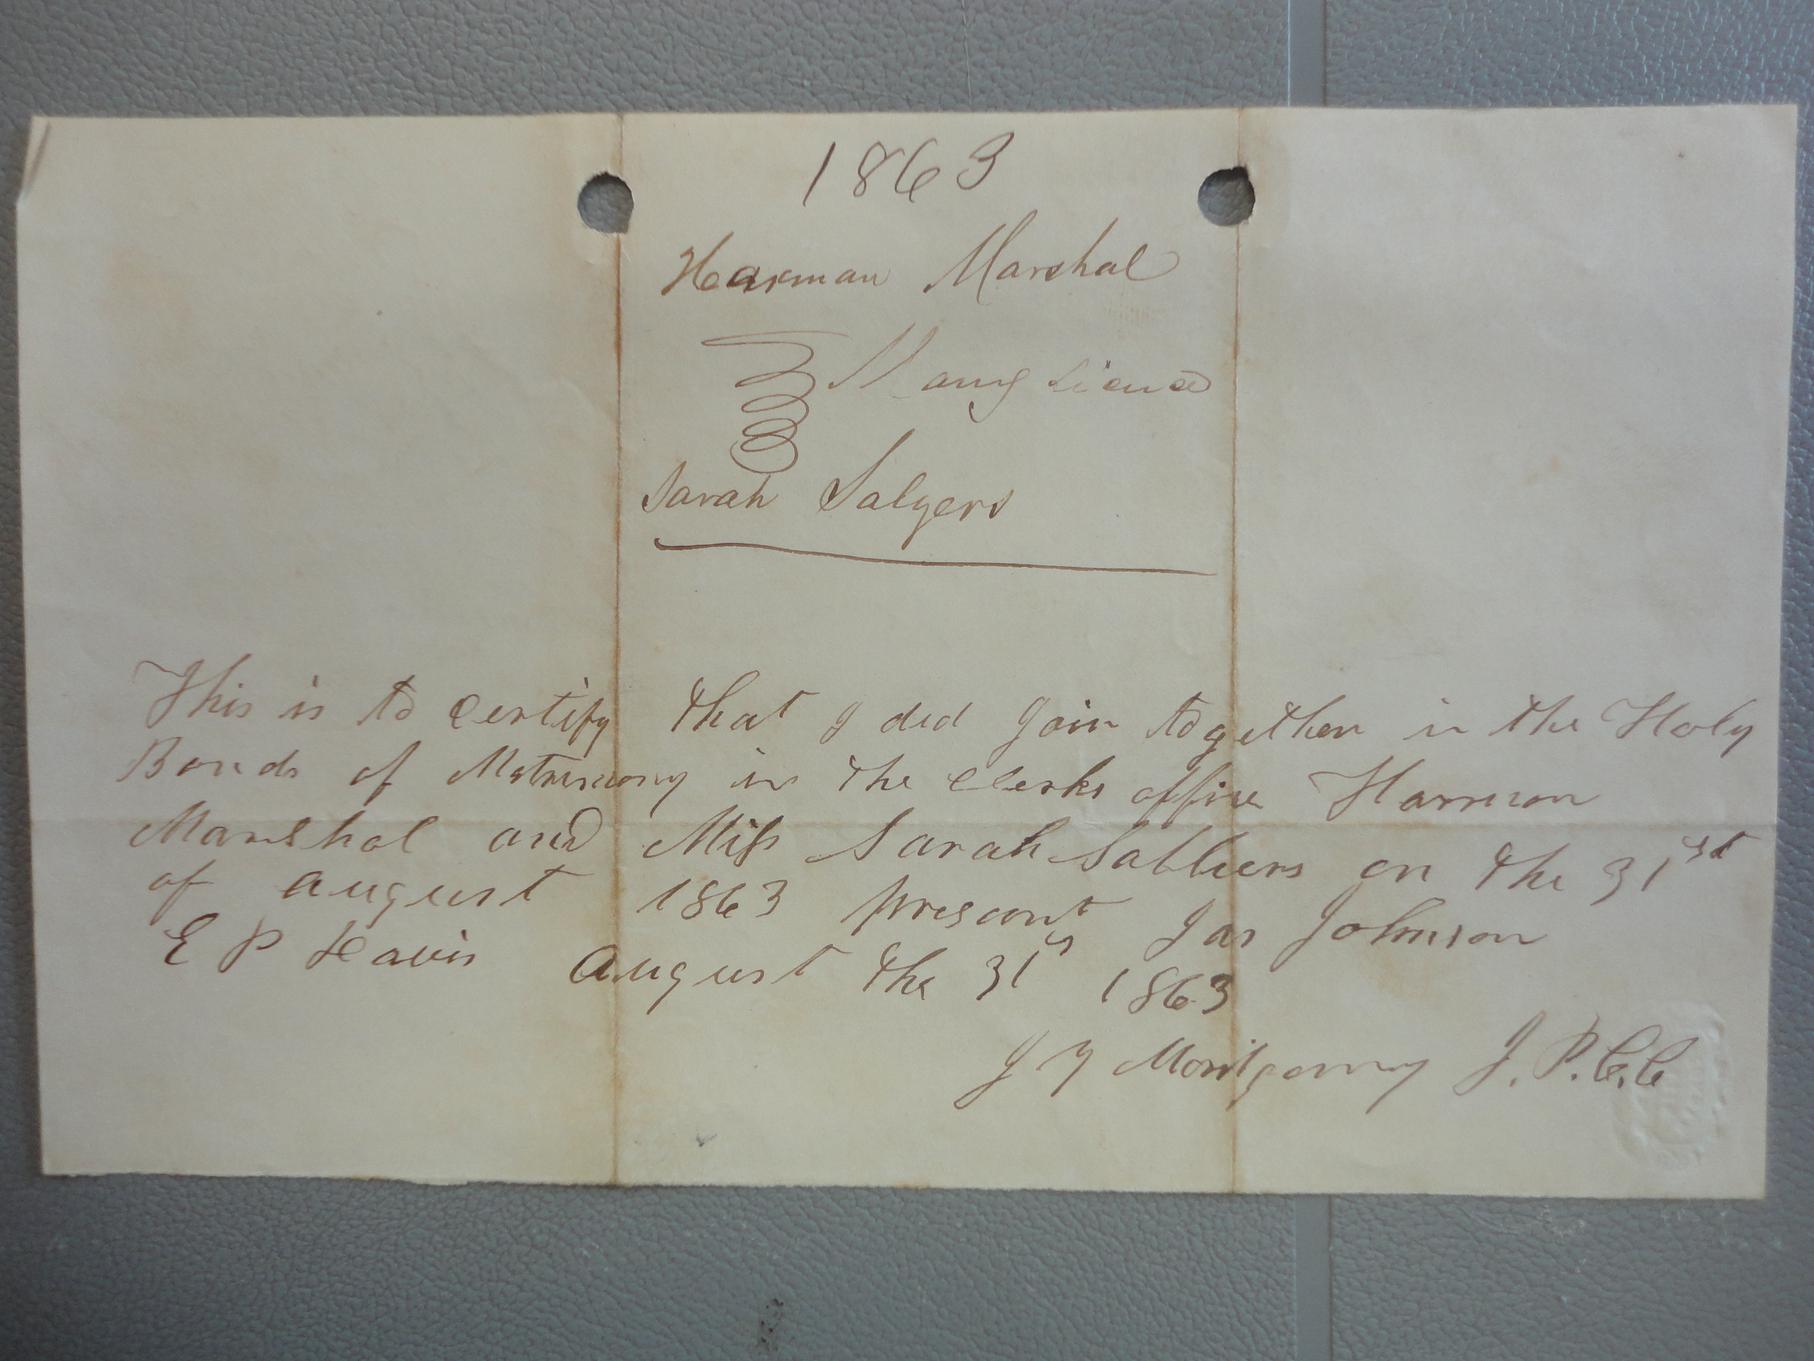 1863
Harman Marshal
Marg Licence
Sarah Salyers
This is to certify that I did Join together in the Holy
Bonds of Matrimony in the Clerks office Harmon
Marshal and Miss Sarah Salliers on the 31st
of August 1863 present Jas Johnson
E P Davis August the 31s 1863
J Y Montgomry J.P.C.C